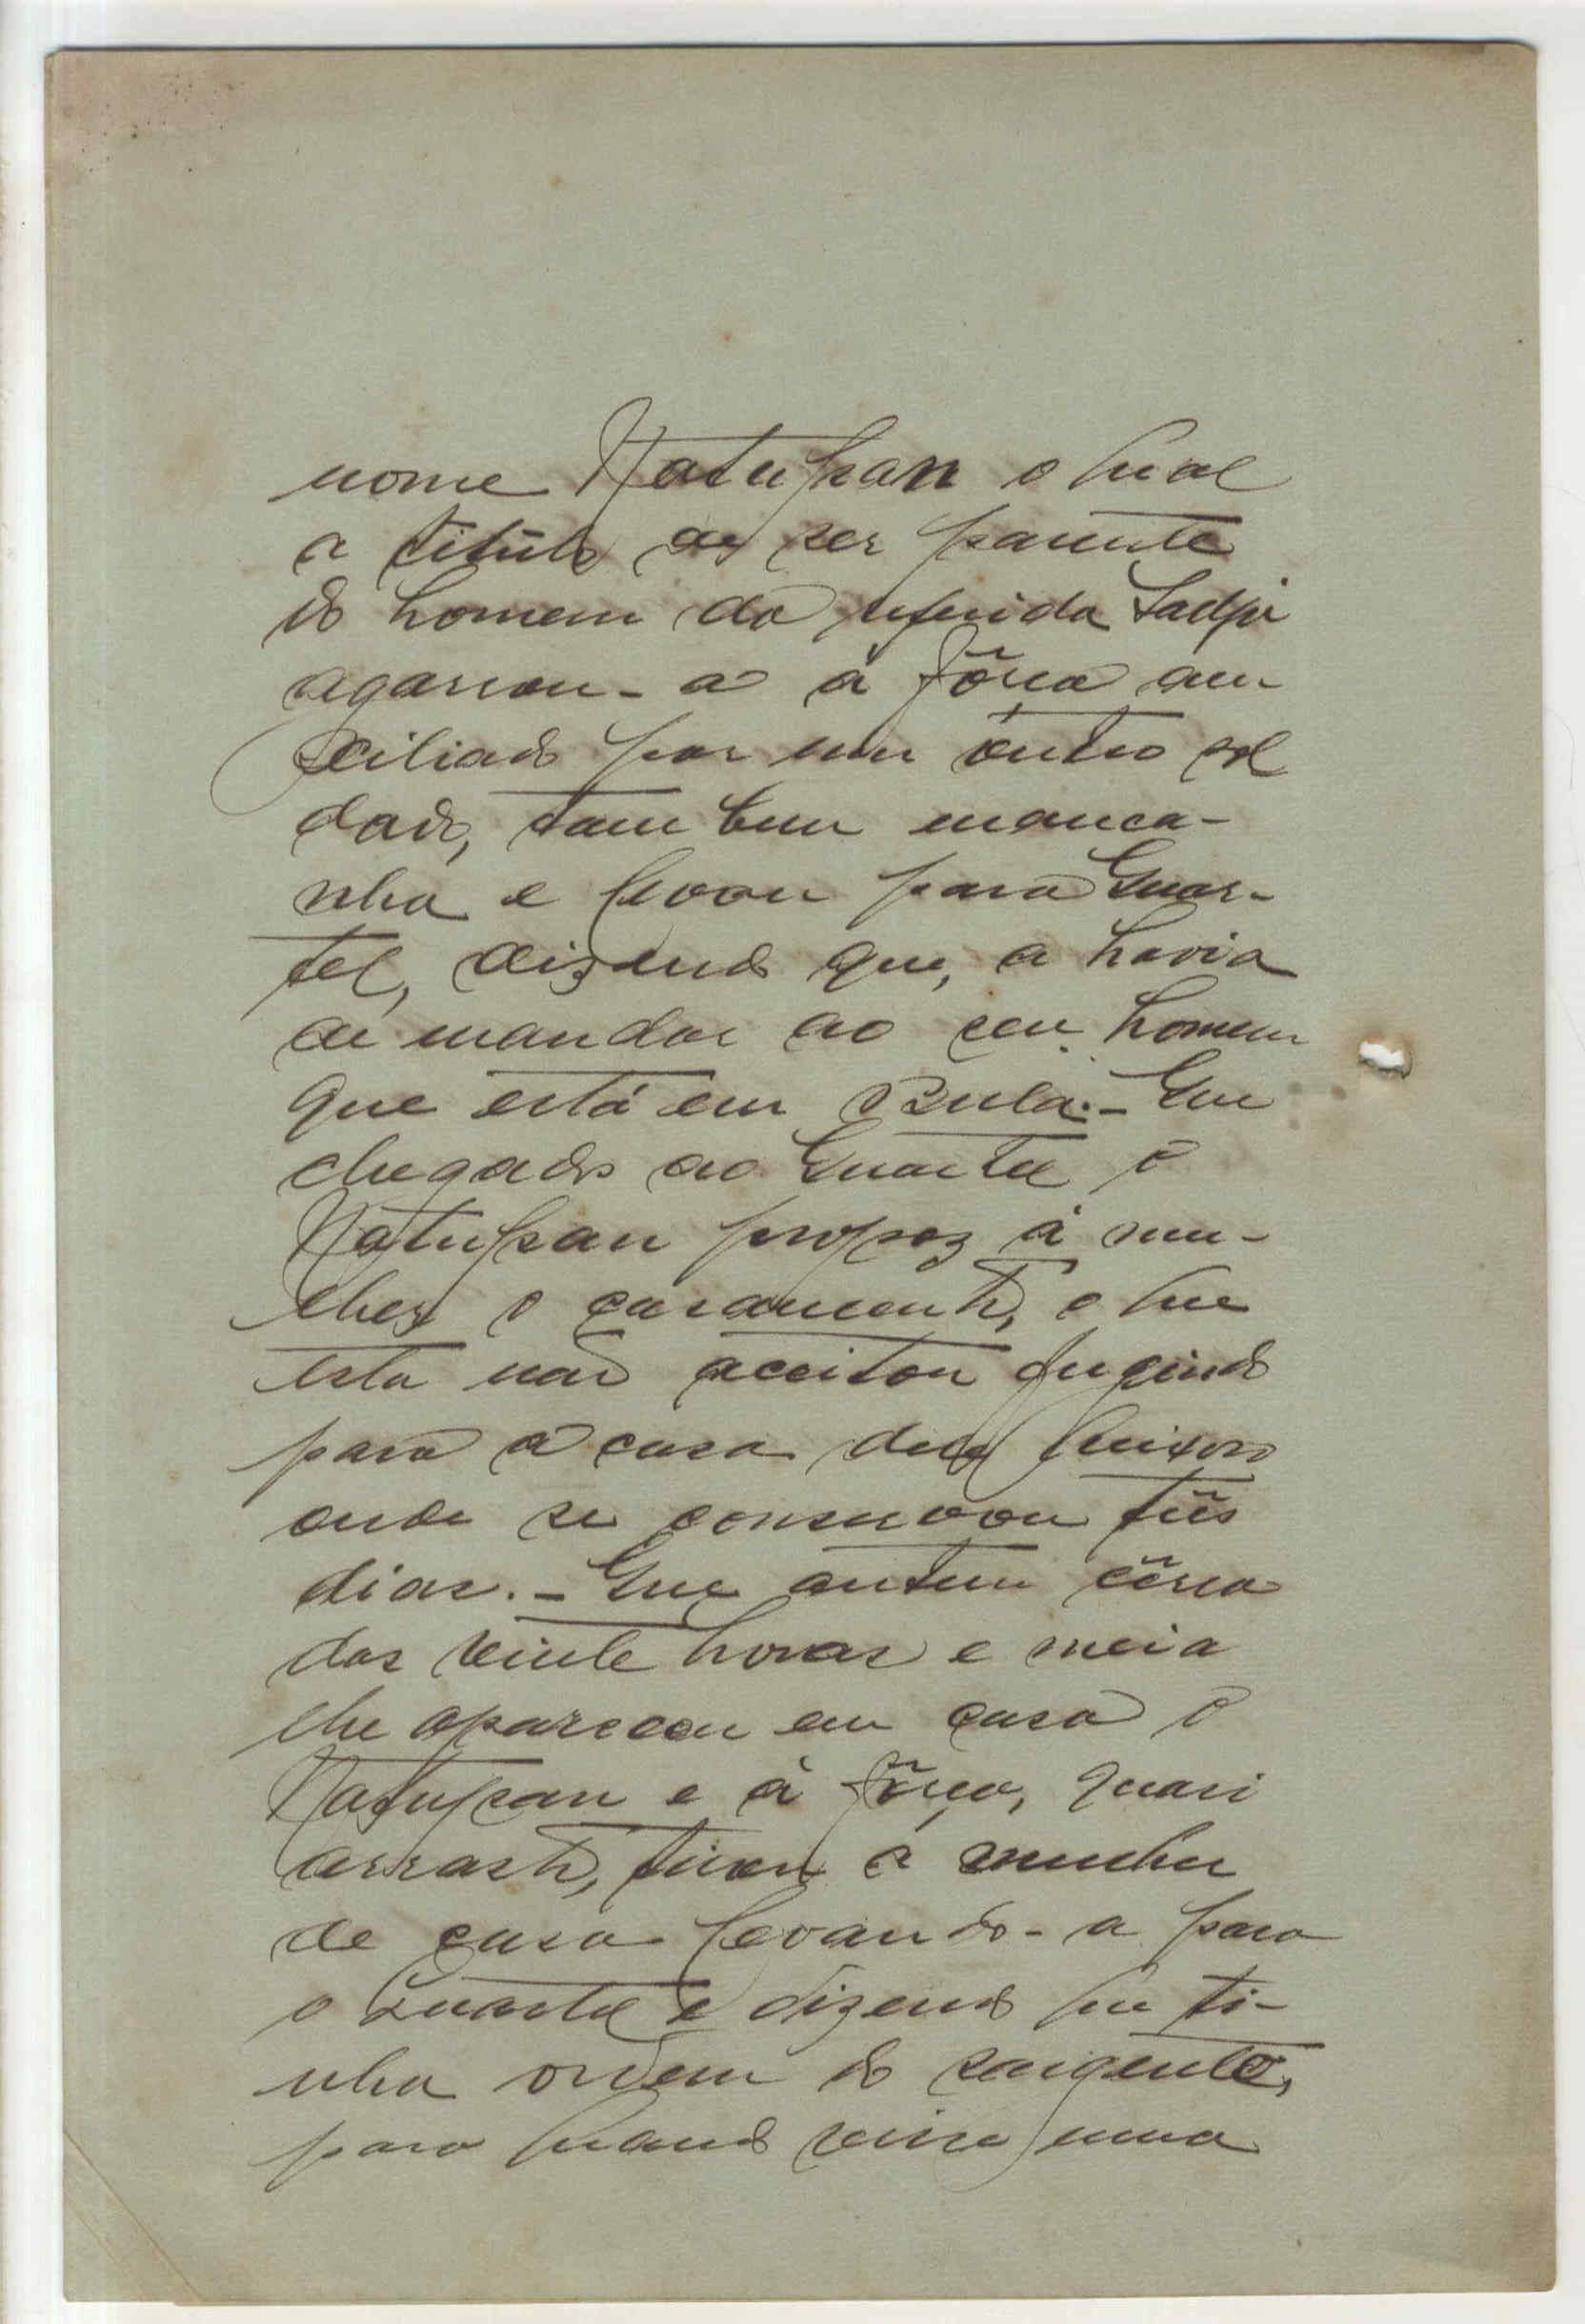 nome Natupan o qual
a titulo de ser parente
do homem da referida Sadpi
agarrou-a à fôrça au-
xiliado por um outro sol
dado, tam bem manca-
nha e levou para Quar-
tel, dizendo que, a havia
de mandar ao seu homem
que está em Bula. - Que
chegado ao Quartel o
Natupan propoz à mu-
lher o casamento, o que
esta não aceitou fugindo
para a casa dele queixoso
onde se conservou três
dias. - Que ontem cêrca
das vinte horas e meia
lhe apareceu em casa o
Natupan e à fôrça, quasi
arrasto, tirou a mulher
de casa levando-a para
o Quartel e dizendo que ti-
nha ordem do sargento,
para quando visse uma